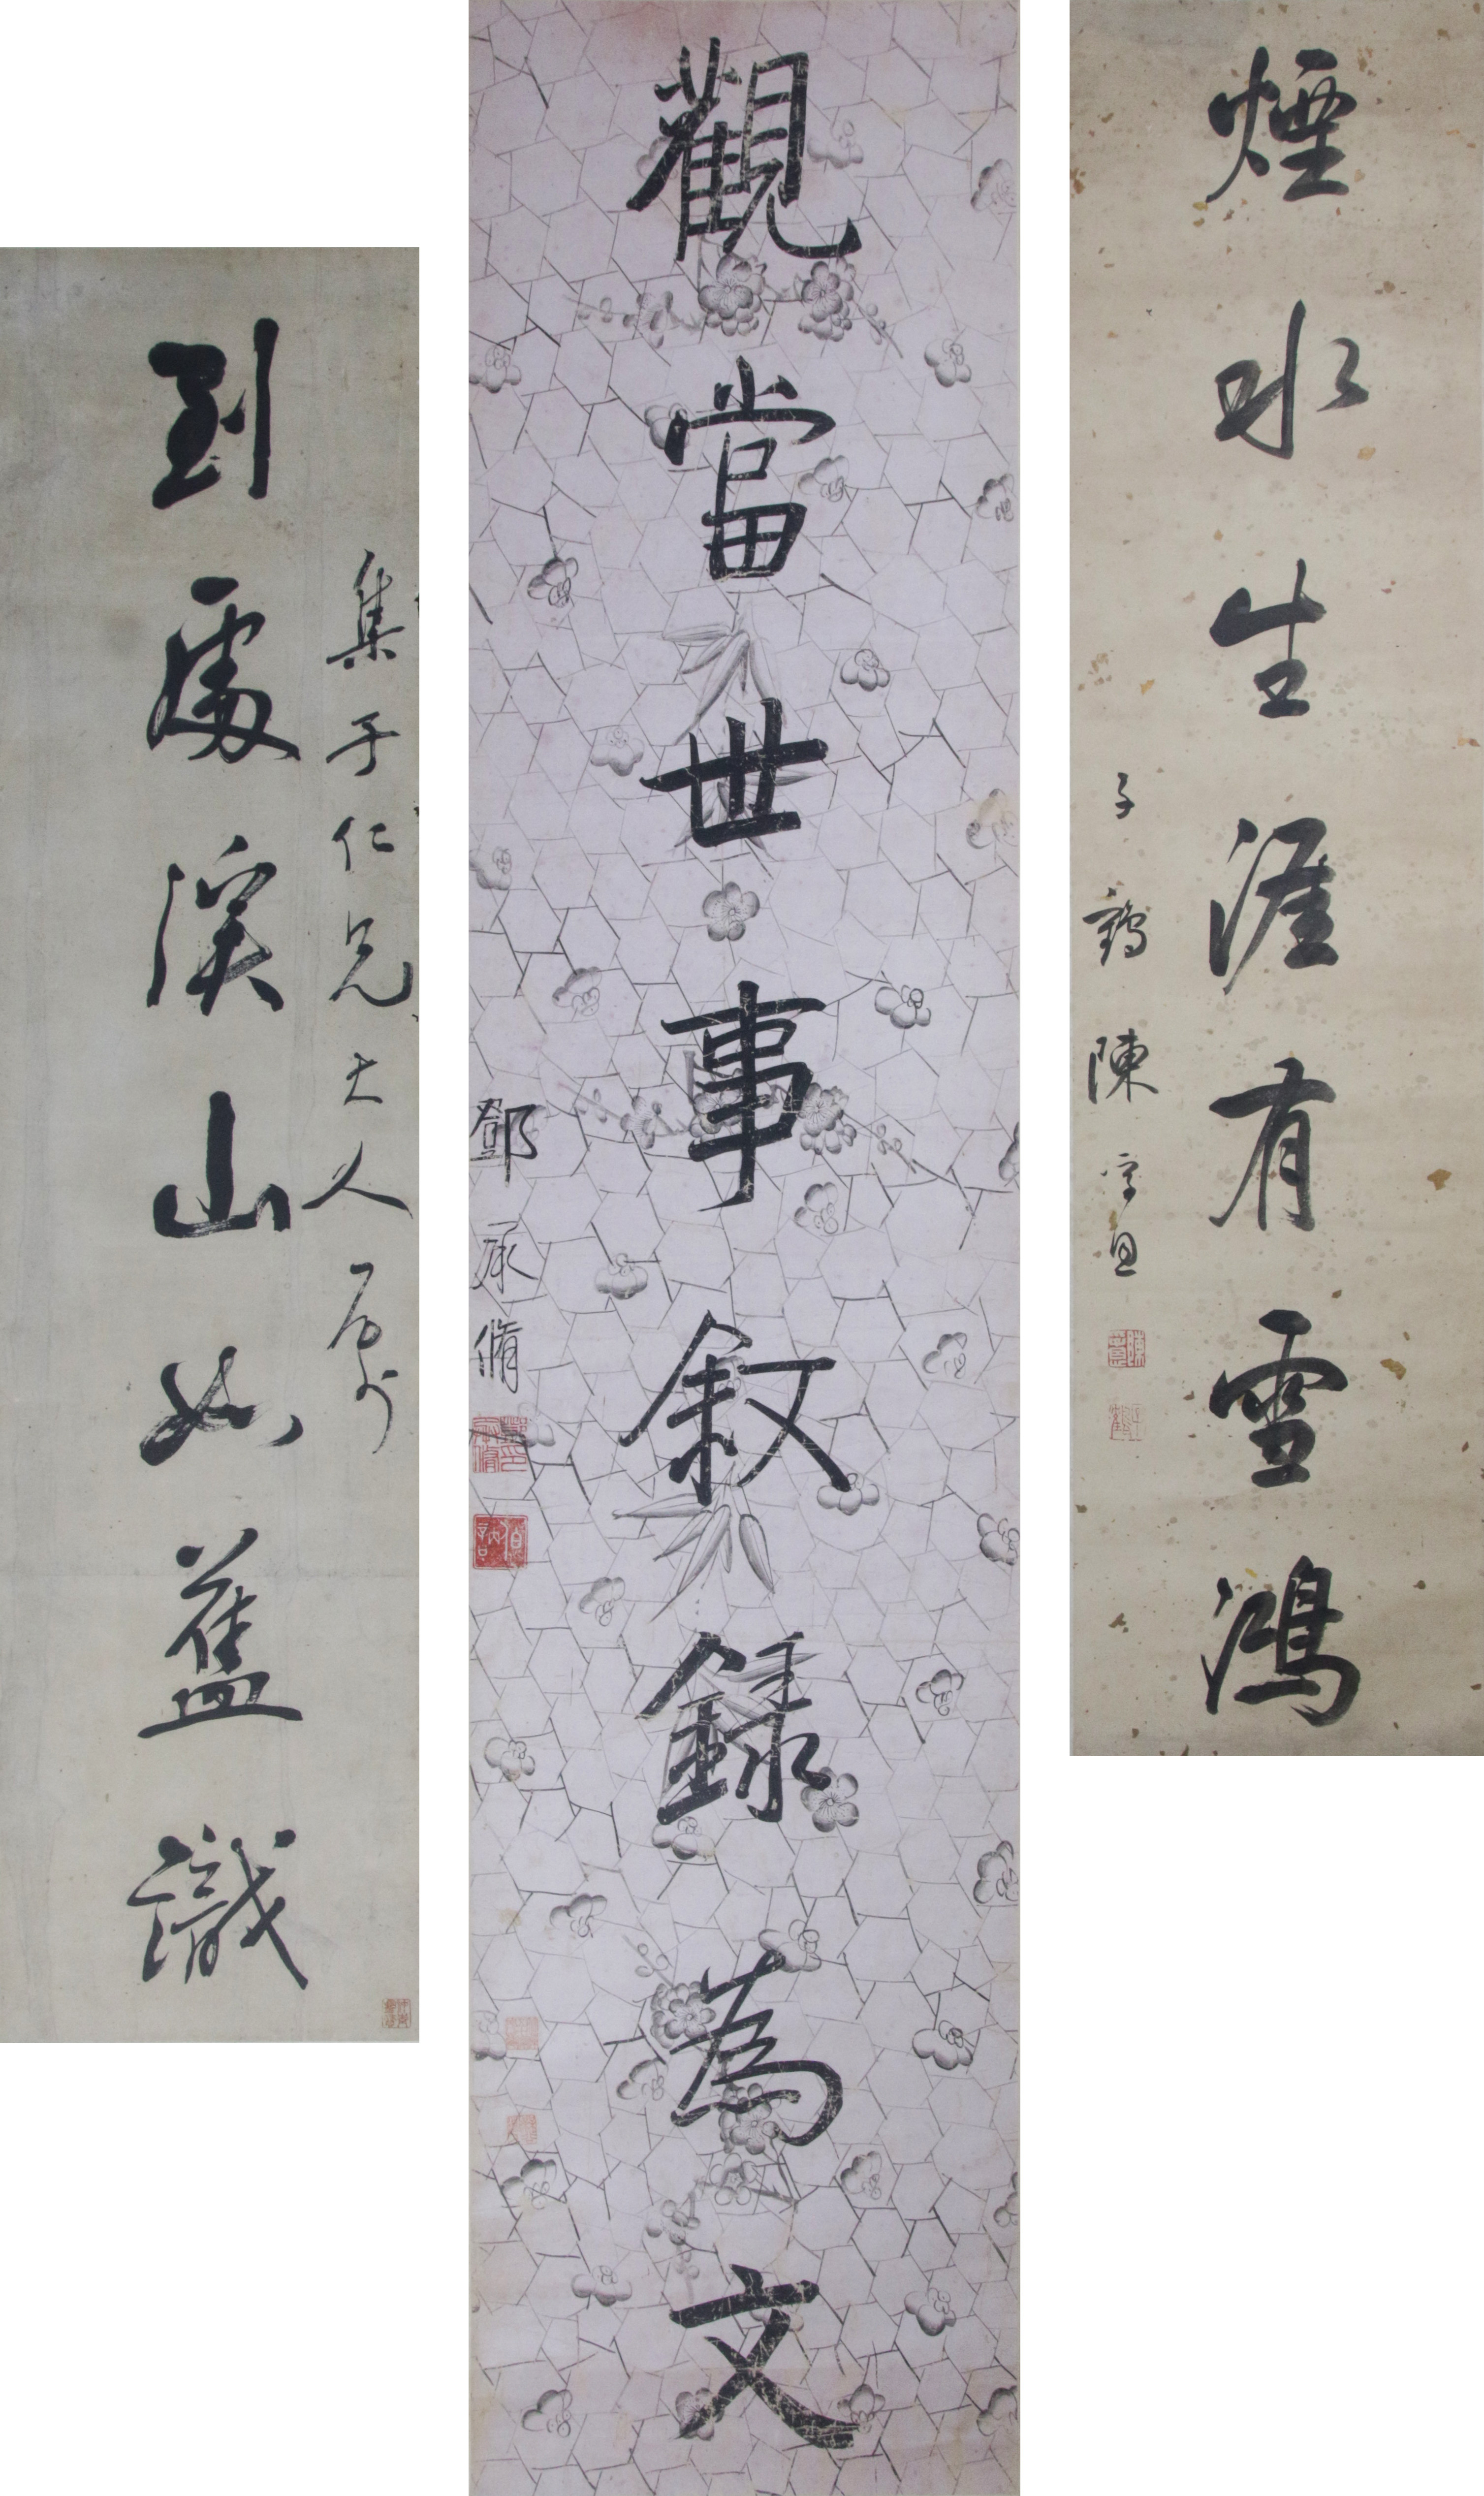 煙水生涯有雪鴻
子鶴陳孚恩
觀當世事敘錄為文
鄧承脩
集子仁兄大人屬
到處溪山如舊識